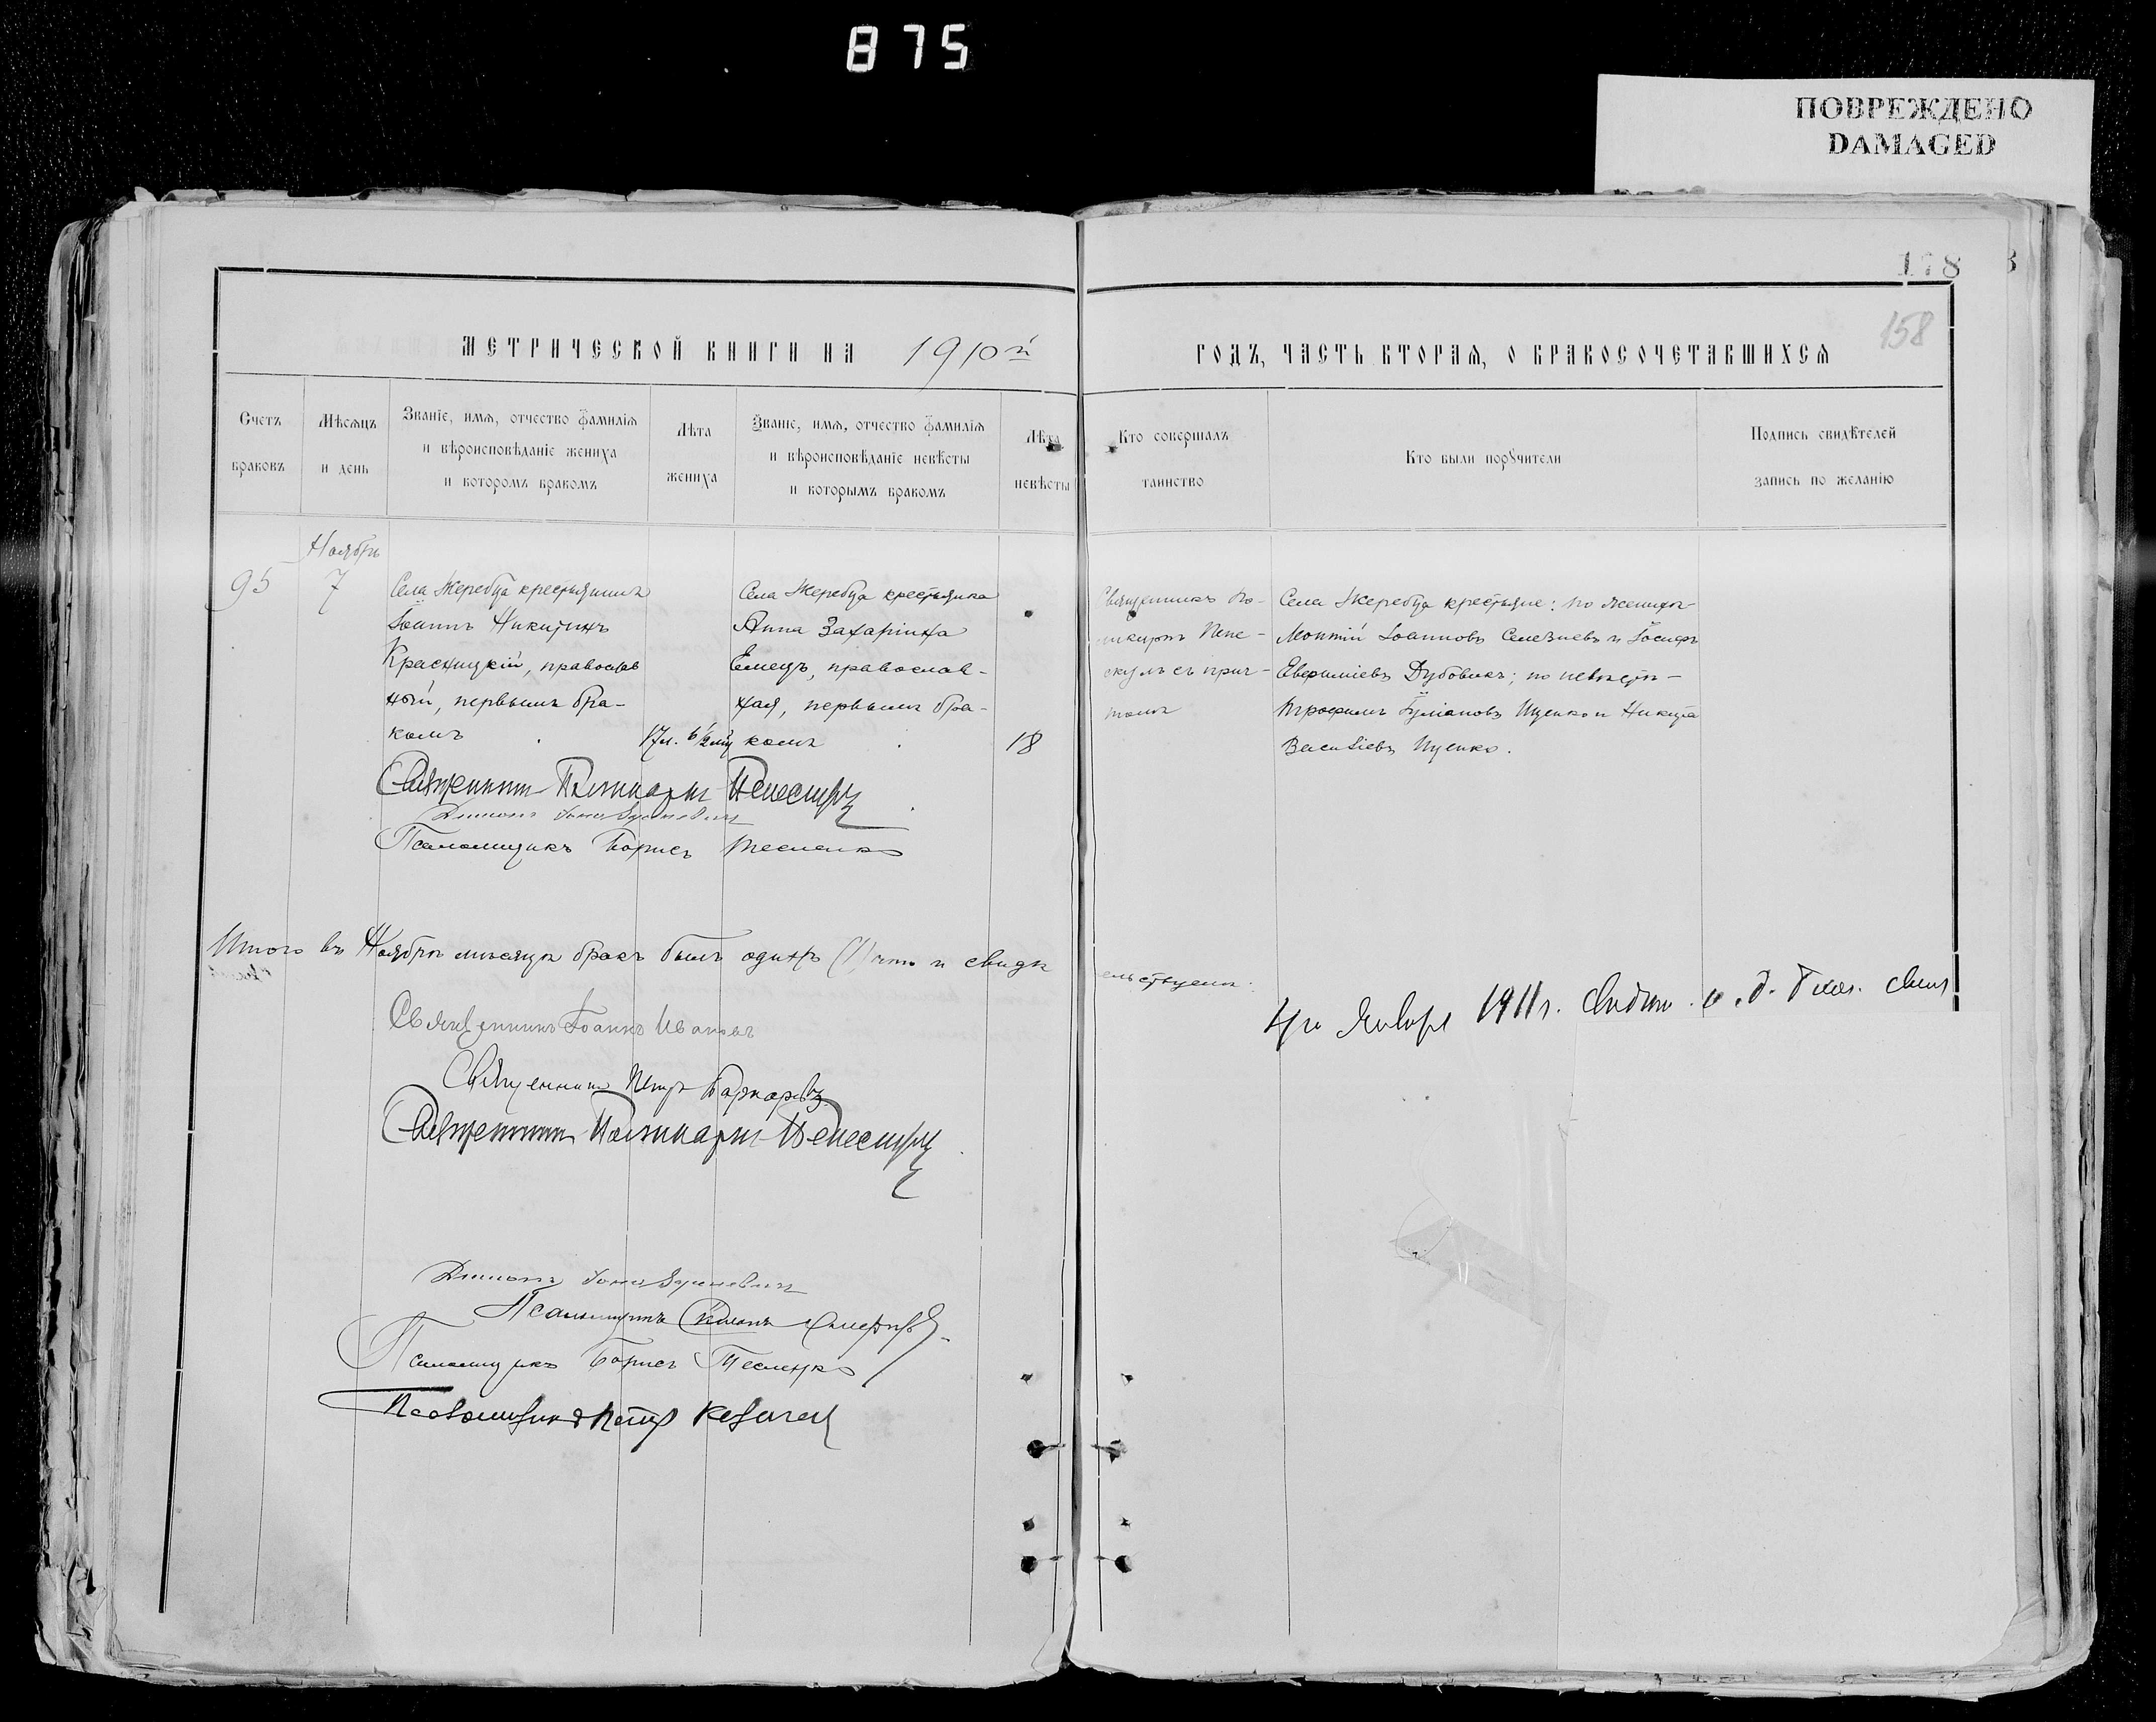 875
ПОВРЕЖДЕНО
DAMAGED
178
158
МЕТРИЧЕСКОЙ КНИГИ НА 1910й
ГОДЪ, ЧАСТЬ ВТОРАЯ, О БРАКОСОЧЕТАВШИХСЯ
Счетъ
браковъ
Мѣсяцъ
и день
Званіе, имя, отчество фамилія
и вѣроисповѣданіе жениха
и которомъ бракомъ
Лѣта
жениха
Званіе, имя, отчество фамилія
и вѣроисповѣданіе невѣсты
и которымъ бракомъ
Лѣта
невѣсты
Кто совершалъ
таинство
Кто были порꙋчители
Подпись свидѣтелей
запись по желанію
Ноябрь
95
7
Села Жеребца крестьянинъ
Іоаннъ Никитинъ
Красницкій, православ
ный, первымъ бра-
комъ
17л. 6½мц
Села Жеребца крестьянка
Анна Захаріина
Емецъ, православ-
ная, первымъ бра-
комъ
18
Священникъ По-
ликарпъ Пепе-
скулъ съ прич-
томъ
Села Жеребца крестьяне: по женихѣ
Іоанновъ Селезневъ и Іосифъ
Евфиміевъ Дубовикъ; по невѣстѣ-
Трофимъ Ищенко и Никита
Василіевъ Ищенко.
Священникъ Поликарпъ
Діаконъ Іона
Псаломщикъ Борисъ Тесленко
Итого въ Ноябрѣ мѣсяцѣ бракъ былъ одинъ (1) что и свидѣ
тельствуемъ:
Священникъ Іоаннъ Ивановъ
Священникъ Петръ
Священникъ Поликарпъ
4го Января 1911 г. и. д. Благ. свящ
Діаконъ Іона
Псаломщикъ
Псаломщикъ Борисъ Тесленко
Псаломщикъ Петръ